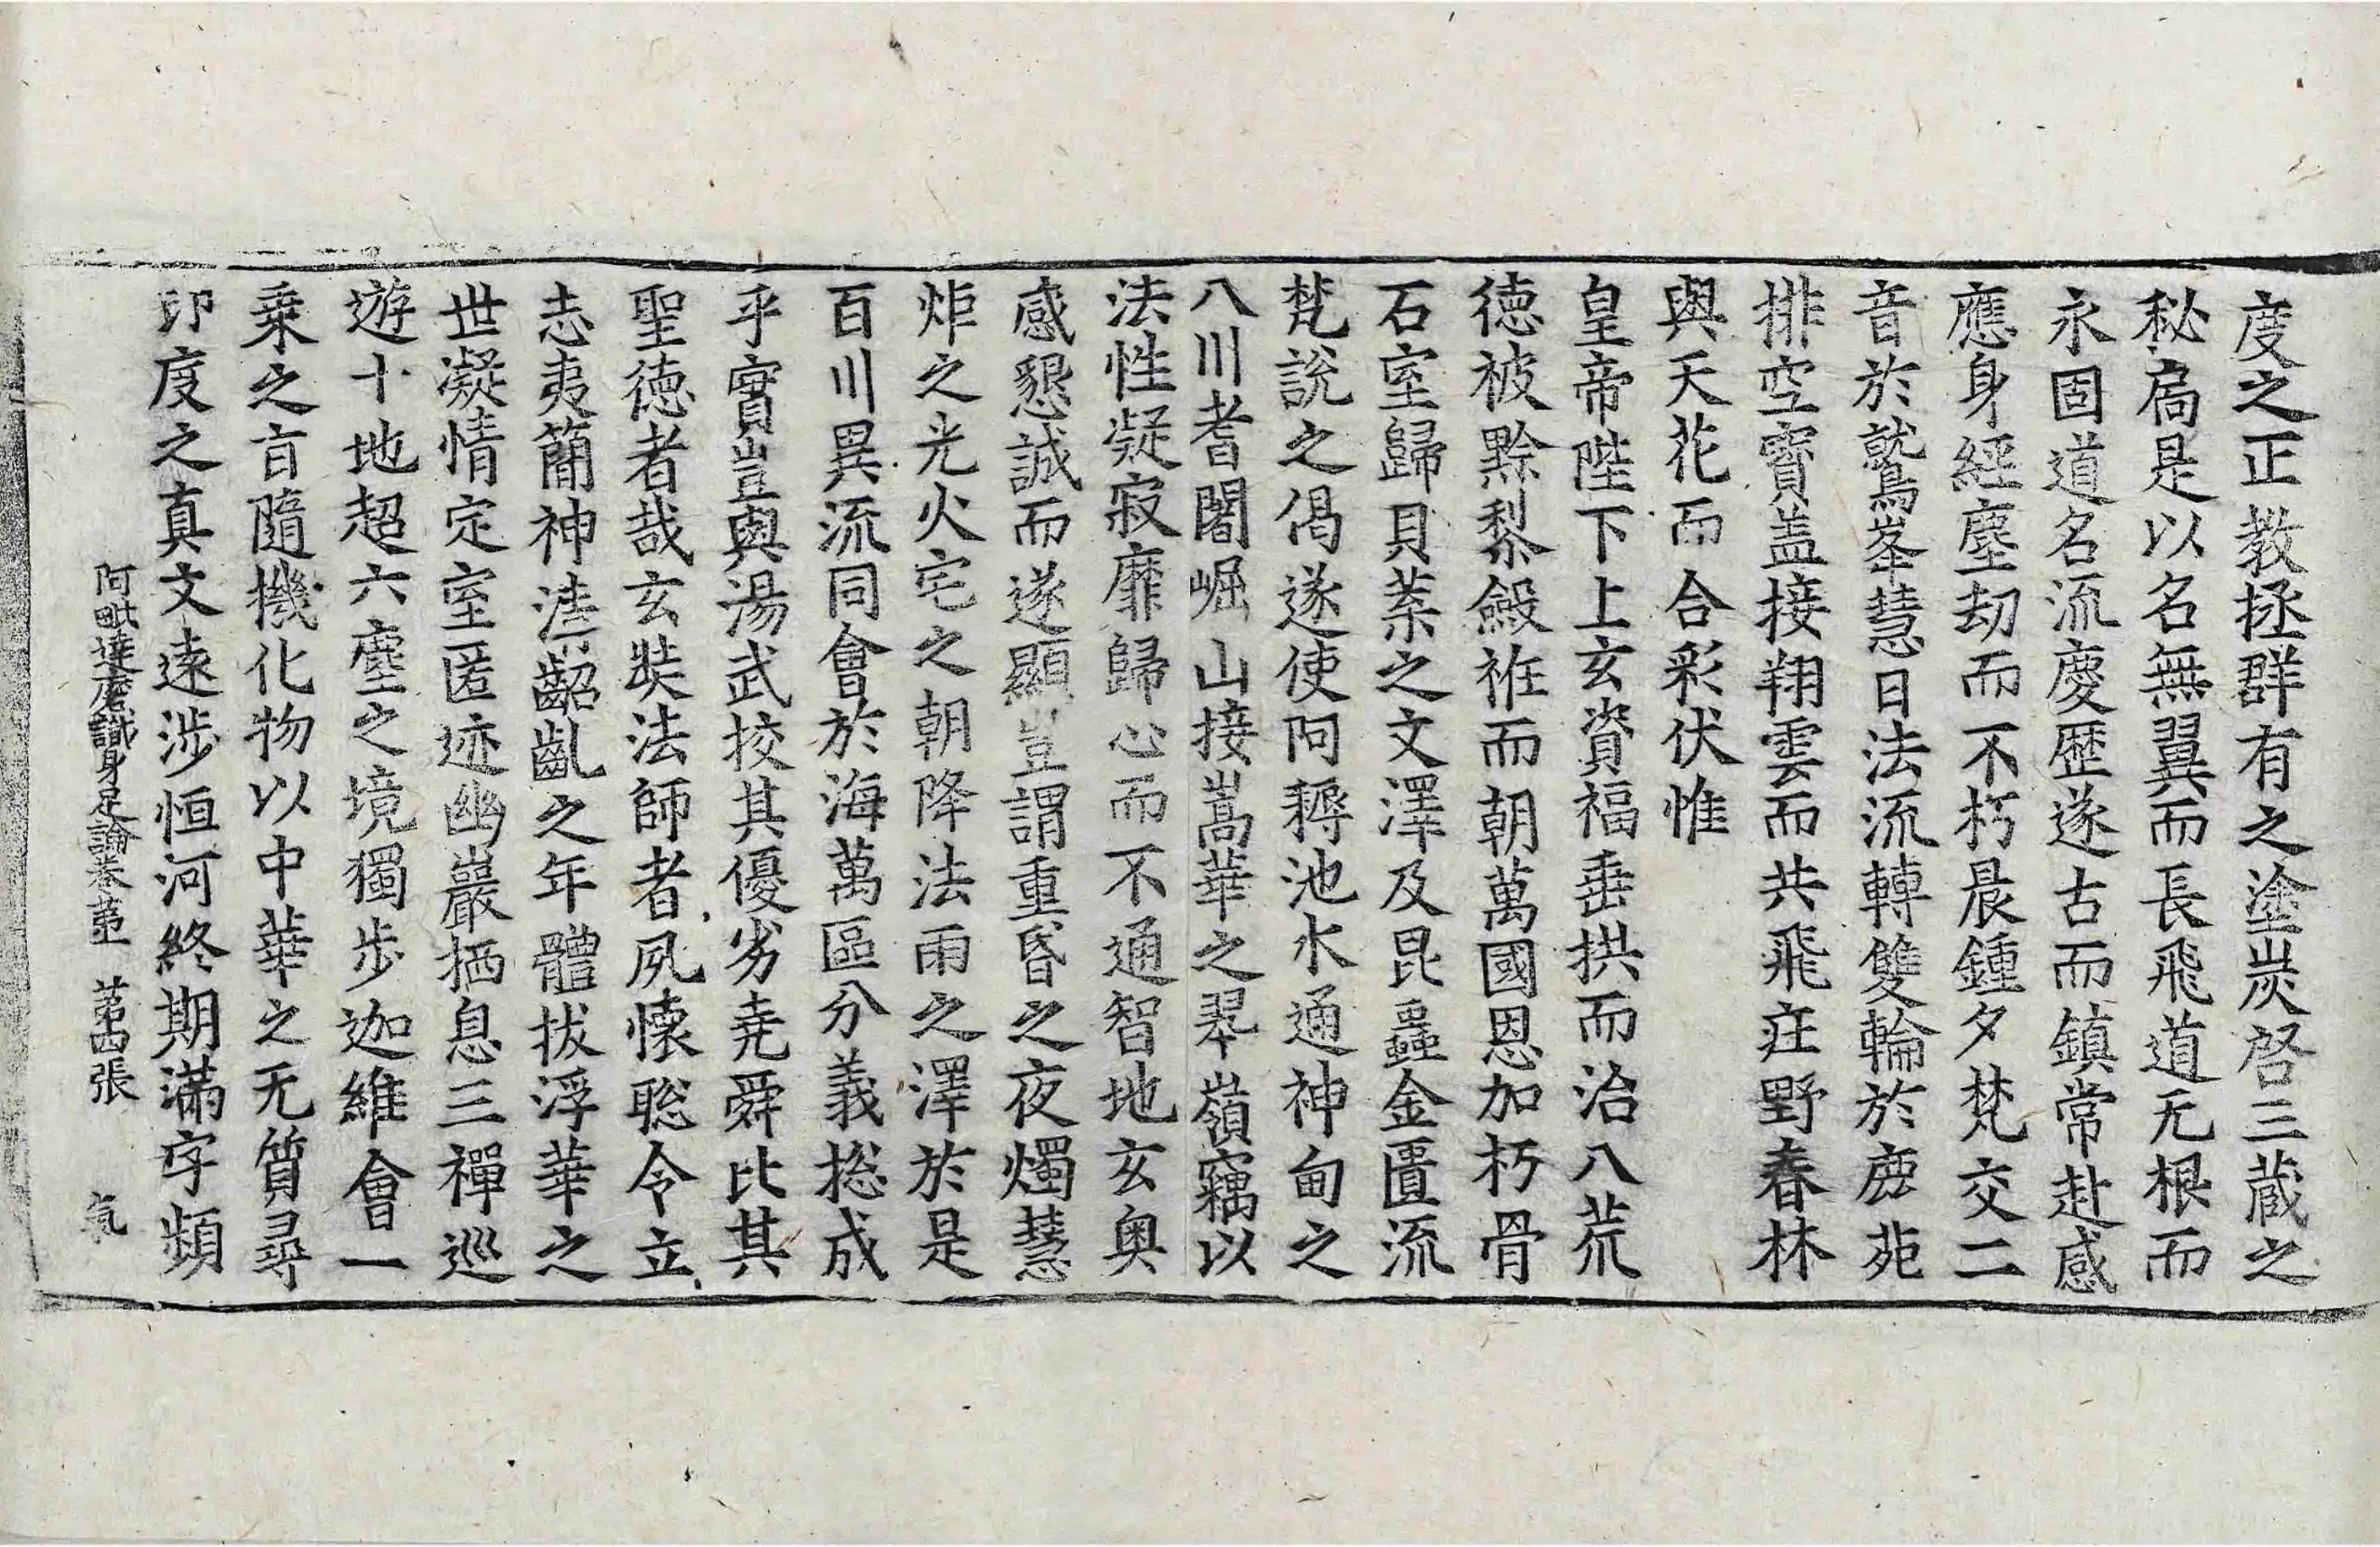 度之正教拯群有之塗炭啓三蔵之
秘扃是以名無翼而長飛道无根而
永固道名流慶歷遂古而鎮常赴感
應身經塵劫而不朽晨鍾夕梵交二
音於鷲峯慧日法流轉雙輪於鹿菀
排空寶盖接翔雲而共飛庄野春林
與天花而合彩伏惟
皇帝陛下上玄資福垂拱而治八荒
徳被黔黎斂袵而朝萬國恩加朽骨
石室歸貝葉之文澤及昆蟲金匱流
梵說之偈遂使阿耨池水通神甸之
八川耆闍崛山接嵩華之翠嶺竊以
法性凝寂靡歸心而不通智地玄奥
感懇誠而遂顯豈謂重昏之夜燭慧
炬之光火宅之朝降法雨之澤於是
百川異流同會於海萬區分義揔成
乎實豈與湯武挍其優劣堯舜比其
聖徳者哉玄奘法師者夙懐聡令立
志夷簡神清齠齓之年體拔浮華之
世凝情定室匿迹幽巖栖息三禪巡
遊十地超六塵之境獨歩迦維會一
乗之旨隨機化物以中華之无質尋
印度之真文遠涉恒河終期滿字頻
阿毗達磨識身足論卷第一 第四張 氣